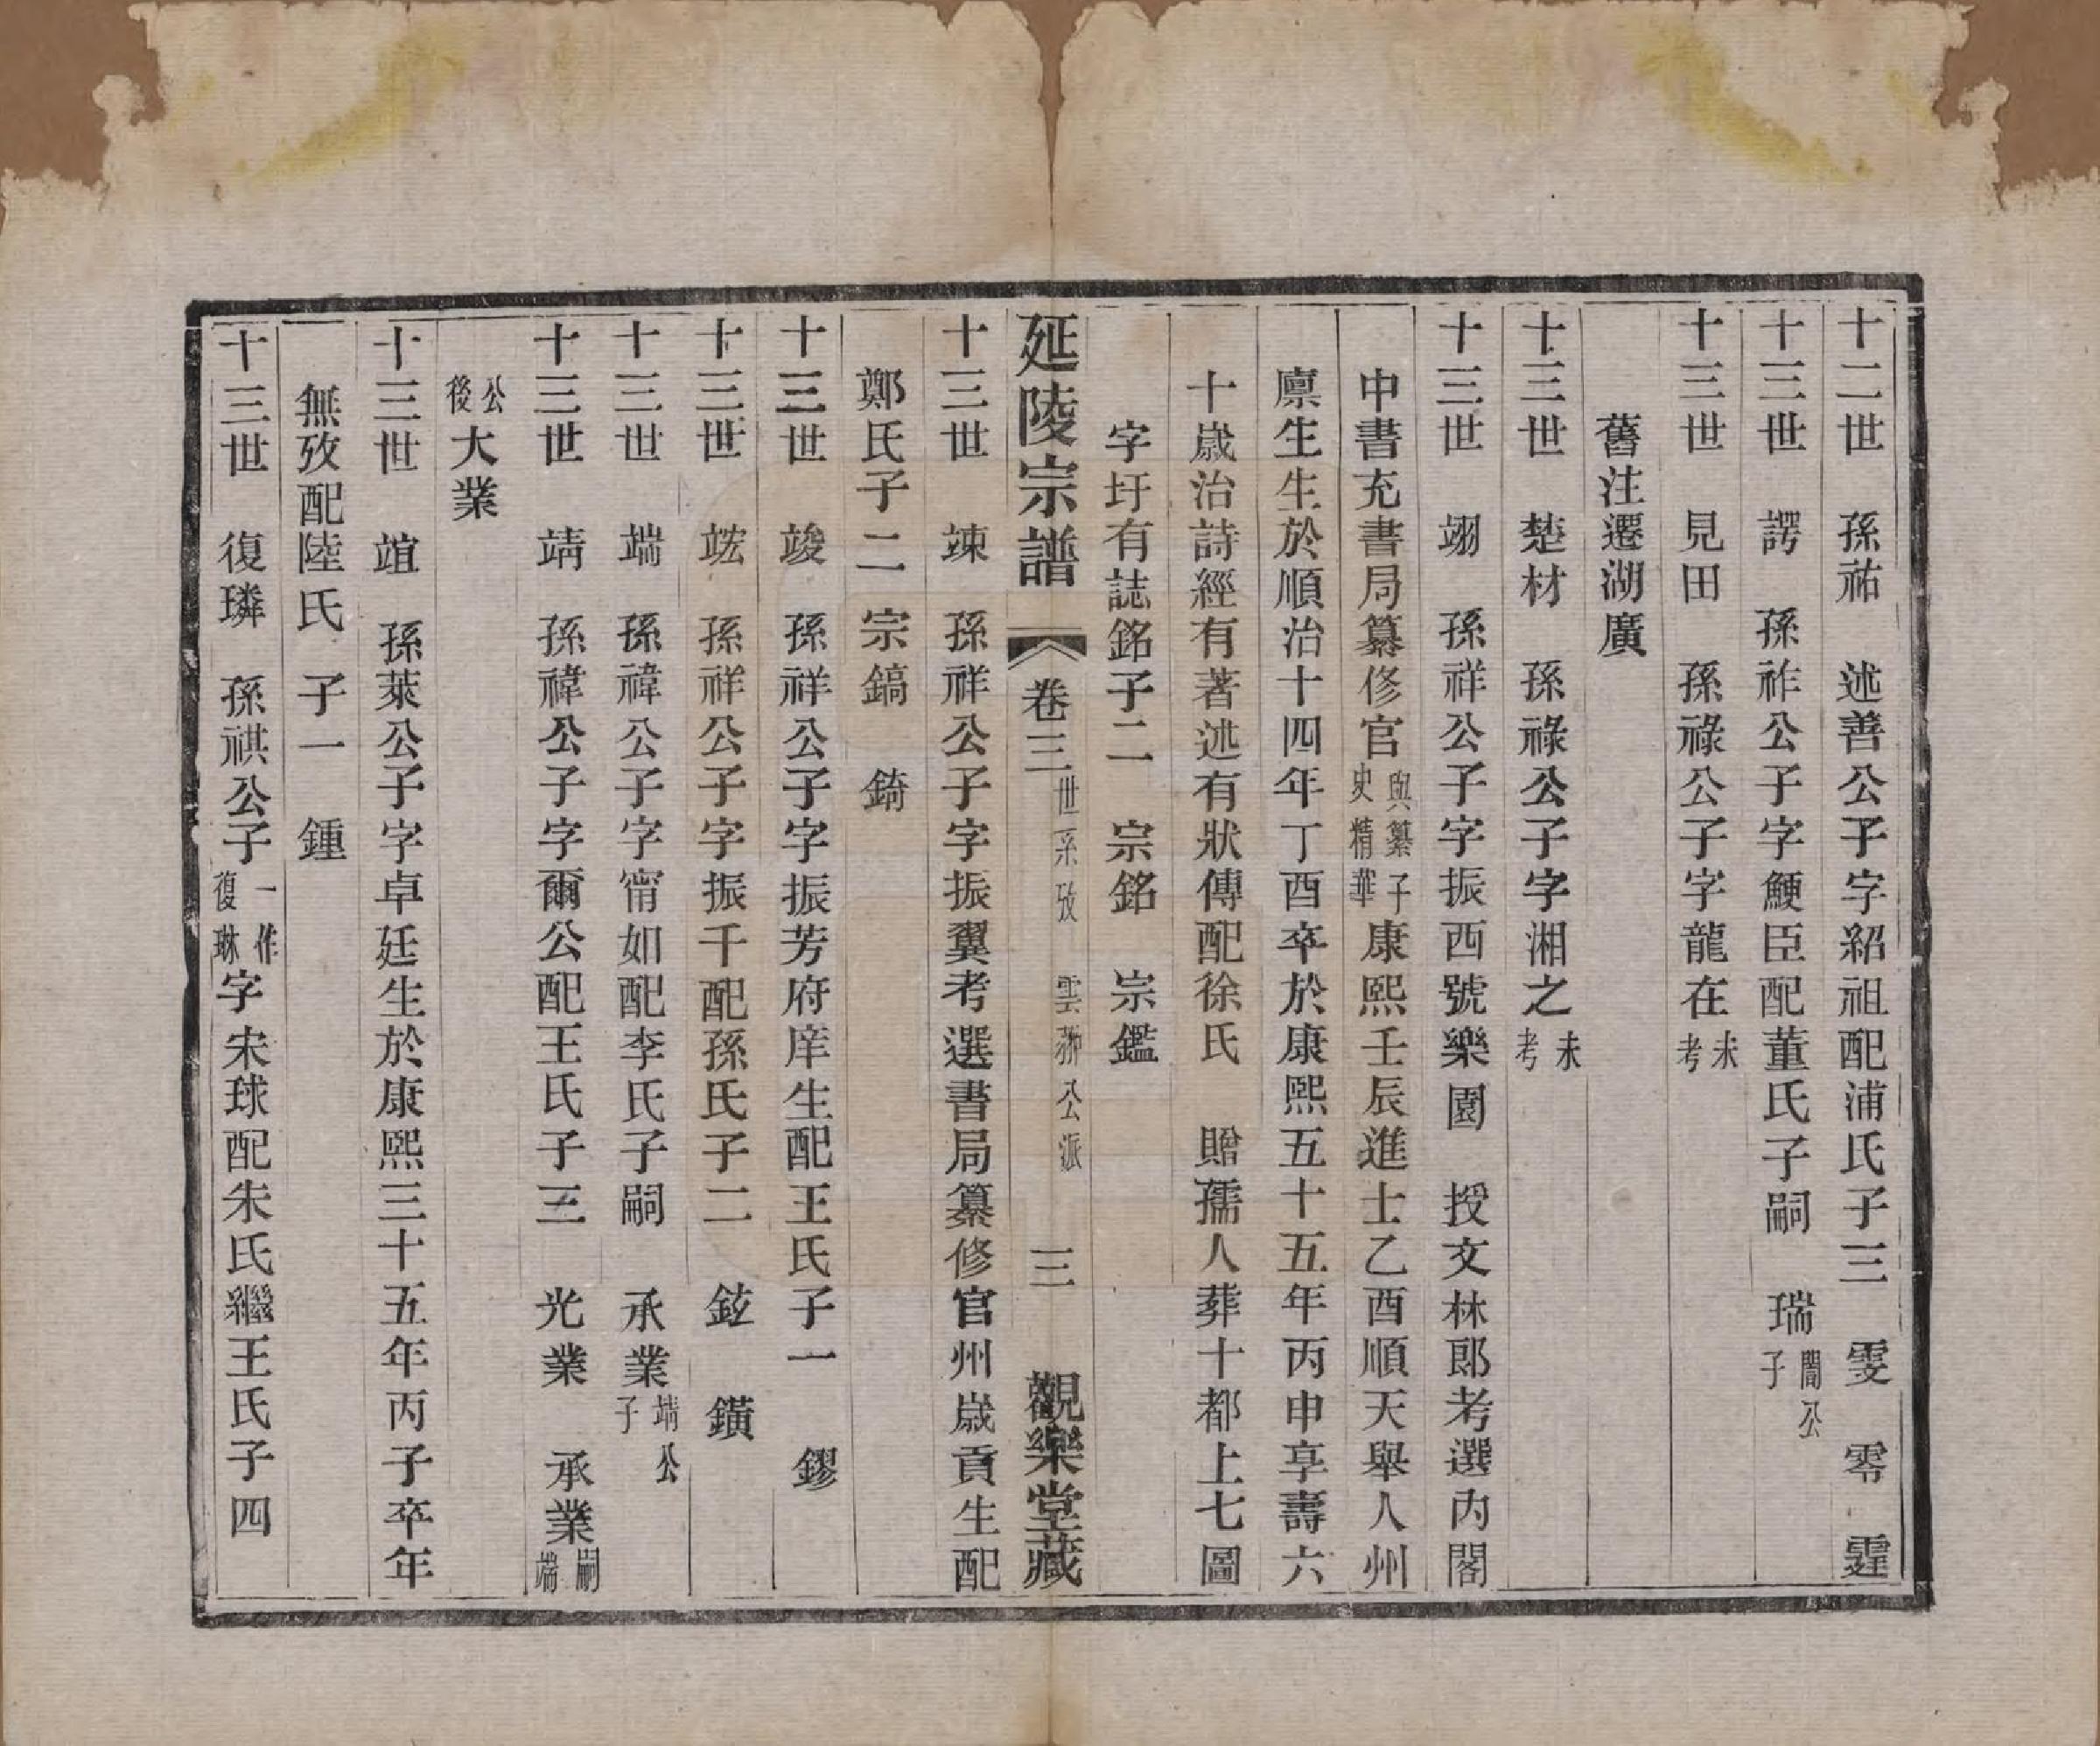 十二世　孫祐　述善公子字紹祖配浦氏子三　雯　零　霆
十三世　諤　孫祚公子字鯁臣配董氏子嗣　瑞誾公子
十三世　見田　孫祿公子字龍在未考
舊注遷湖廣
十三世　楚材　孫祿公子字湘之未考
十三世　翊　孫祥公子字振西號樂園　授文林郎考選內閣
中書充書局纂修官與纂子史精華康熙壬辰進士乙酉順天舉人州
廩生生於順治十四年丁酉卒於康熙五十五年丙申享壽六
十歲治詩經有著述有狀傳配徐氏　贈孺人葬十都上七圖
字圩有誌銘子二　宗銘　宗鑑
延陵宗譜　卷三　世系攷　雲翀公派　三　觀樂堂藏
十三世　竦　孫祥公子字振翼考選書局纂修官州歲貢生配
鄭氏子二　宗鎬　錡
十三世　竣　孫祥公子字振芳府庠生配王氏子一　鏐
十三世　竑　孫祥公子字振千配孫氏子二　鉉　鐄
十三世　端　孫禕公子字甯如配李氏子嗣　承業靖公子
十三世　靖　孫禕公子字爾公配王氏子三　光業　承業嗣端
公後大業
十三世　竩　孫萊公子字卓廷生於康熙三十五年丙子卒年
無攷配陸氏　子一　鍾
十三世　復璘　孫祺公子一作復琳字宋球配朱氏繼王氏子四